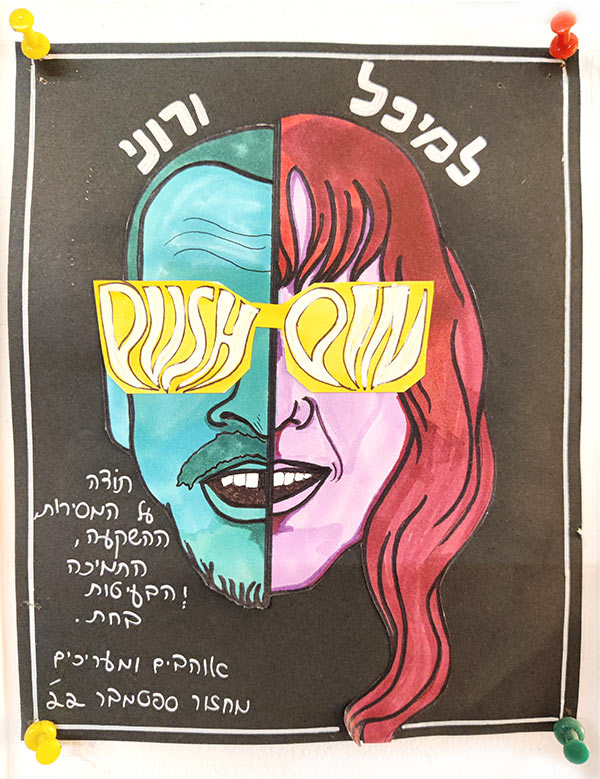 למיכל
ורוני
PUSH PIN
תודה
על המסירות,
ההשקעה,
התמיכה
והבעיטות!
בתחת.
אוהבים ומעריכים
מחזור ספטמבר 22'